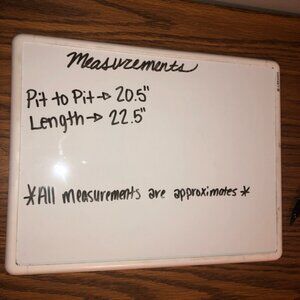 Measurements
Pit to Pit → 20.5"
Length → 22.5"
*All measurements are approximates *